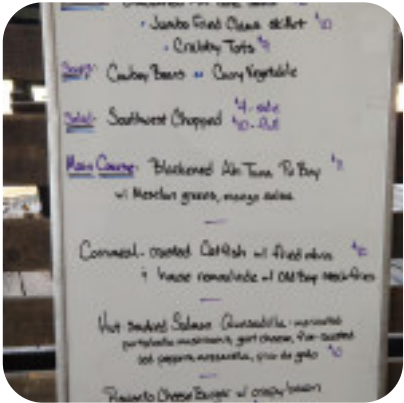 Jumbo Fried Clams skillet $10
Crabby Tots $9
Soups: Cowboy Beans or Curry Vegetable
$4 - side
Salad: Southwest Chopped $10 - full
Main Course: Blackened Ahi Tuna Po Boy
w/ Mesclun greens, mango salsa
Cornmeal - crusted Catfish w/ fried okra
& house remoulade w/ Old Bay steak fries
Hot Smoked Salmon Quesadilla - marinated
portobello mushrooms, goat cheese, fire-roasted
red peppers, mozzarella, pico de gallo $10
Cheese Burger w/ crispy bacon